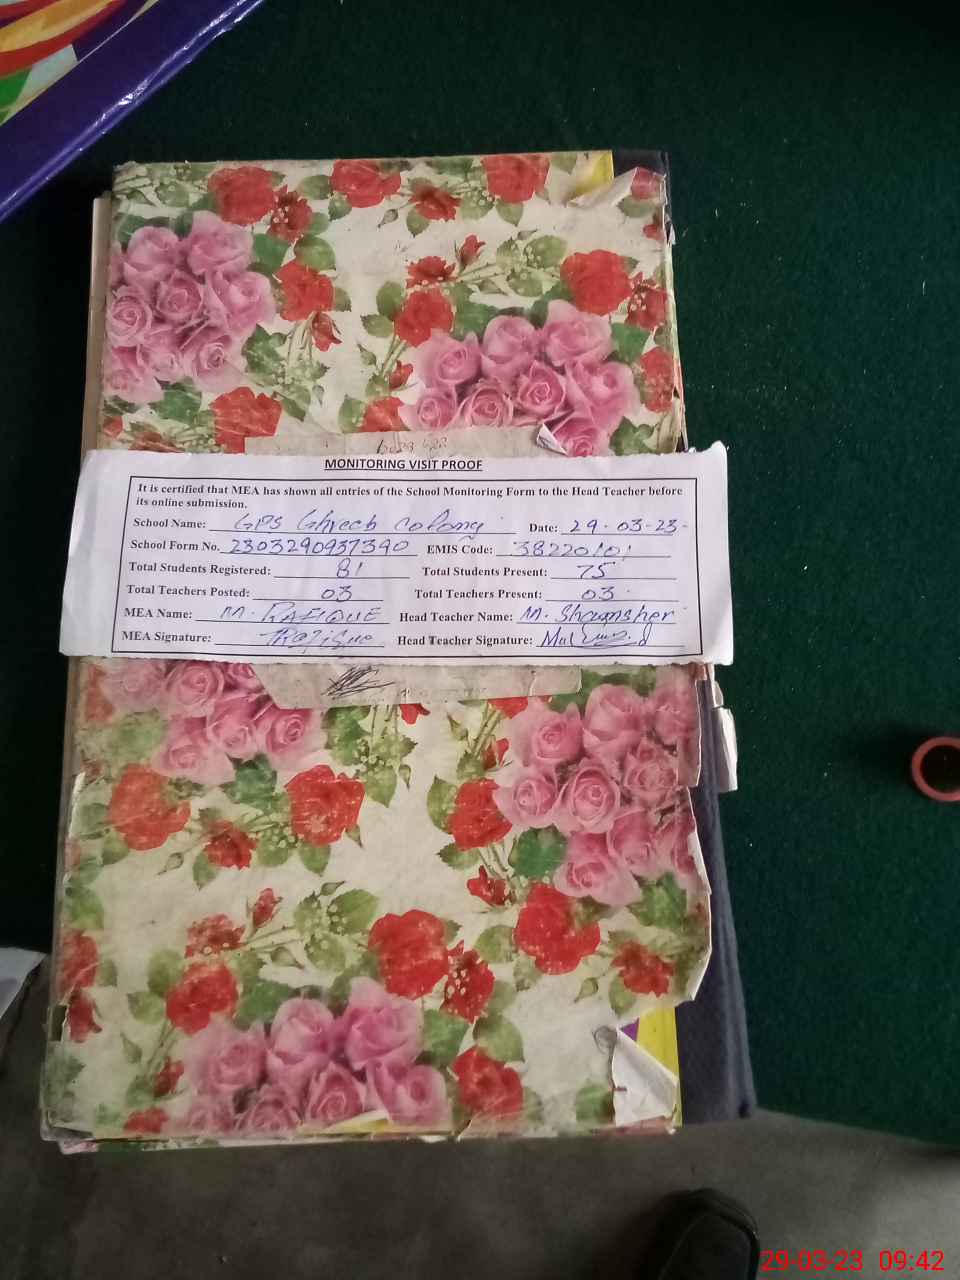 MONITORING VISIT PROOF
It is certified that MEA has shown all entries of the School Monitoring Form to the Head Teacher before
its online submission.
School Name: GPS Ghreeb colony Date: 29-03-23-
School Form No. 2303290937390 EMIS Code: 38220101
Total Students Registered: 81 Total Students Present: 75
Total Teachers Posted: 03 Total Teachers Present: 03
MEA Name: M. RAFIQUE Head Teacher Name: M. Shamsher
MEA Signature: Rafique Head Teacher Signature:
29-03-23 09:42